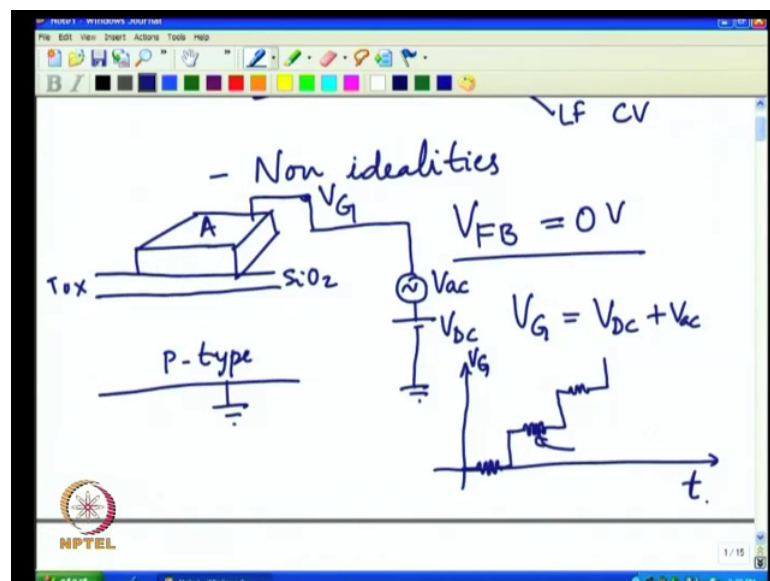 Note1 - Windows Journal
File Edit View Insert Actions Tools Help
B I
LF CV
- Non idealities
VG
A
VFB = 0 V
Tox
SiO2
Vac
VDC
VG = VDC + Vac
P-type
VG
t.
NPTEL
1 / 15
start